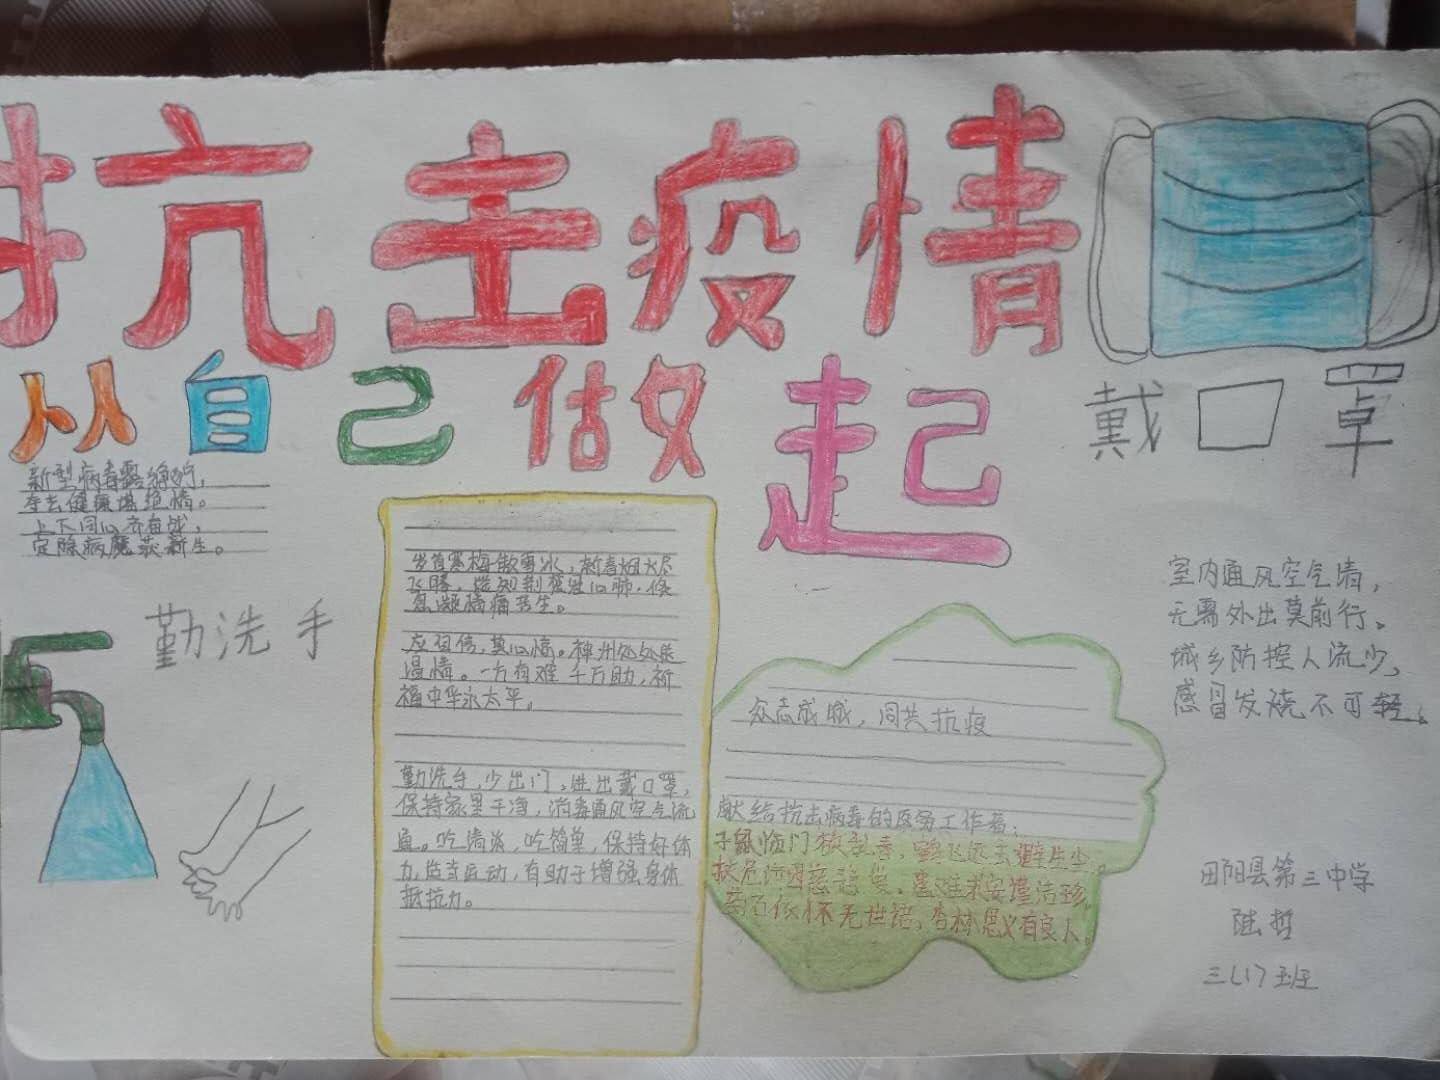 抗击疫情
从自己做起
戴口罩
新型病毒露
夺去健康堪绝情。
上下同心齐奋战，
定除病魔获新生。
勤洗手
岁首寒梅傲雪冰，新春烟火尽
心肺，休
息凝情痛苍生。
应召传，其心情。神州处处柔
温情。一方有难千万助，祈
福中华永太平。
勤洗手，少出门，进出戴口罩，
保持家里干净，消毒通风空气流
通。吃清淡，吃简单，保持好体
力，适当运动，有助于增强身体
抵抗力。
众志成城，同共抗疫
献给抗击病毒的医务工作者：
子鼠临门
飞远去避生尘。
扶危济困
药石依怀无世语，杏林思义有良人。
室内通风空气清，
无需外出莫前行。
城乡防控人流少，
感冒发烧不可轻。
田阳县第三中学
陆哲
三(17)班